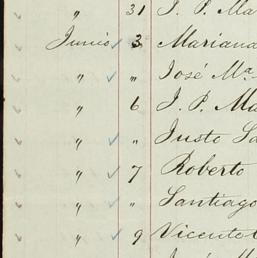 " 31 J. P. Ma
Junio 3 Mariana
" " José Ma.
" 6 J. P. Ma
" " Justo Sa
" 7 Roberto
" " Santiago
" 9 Vicente